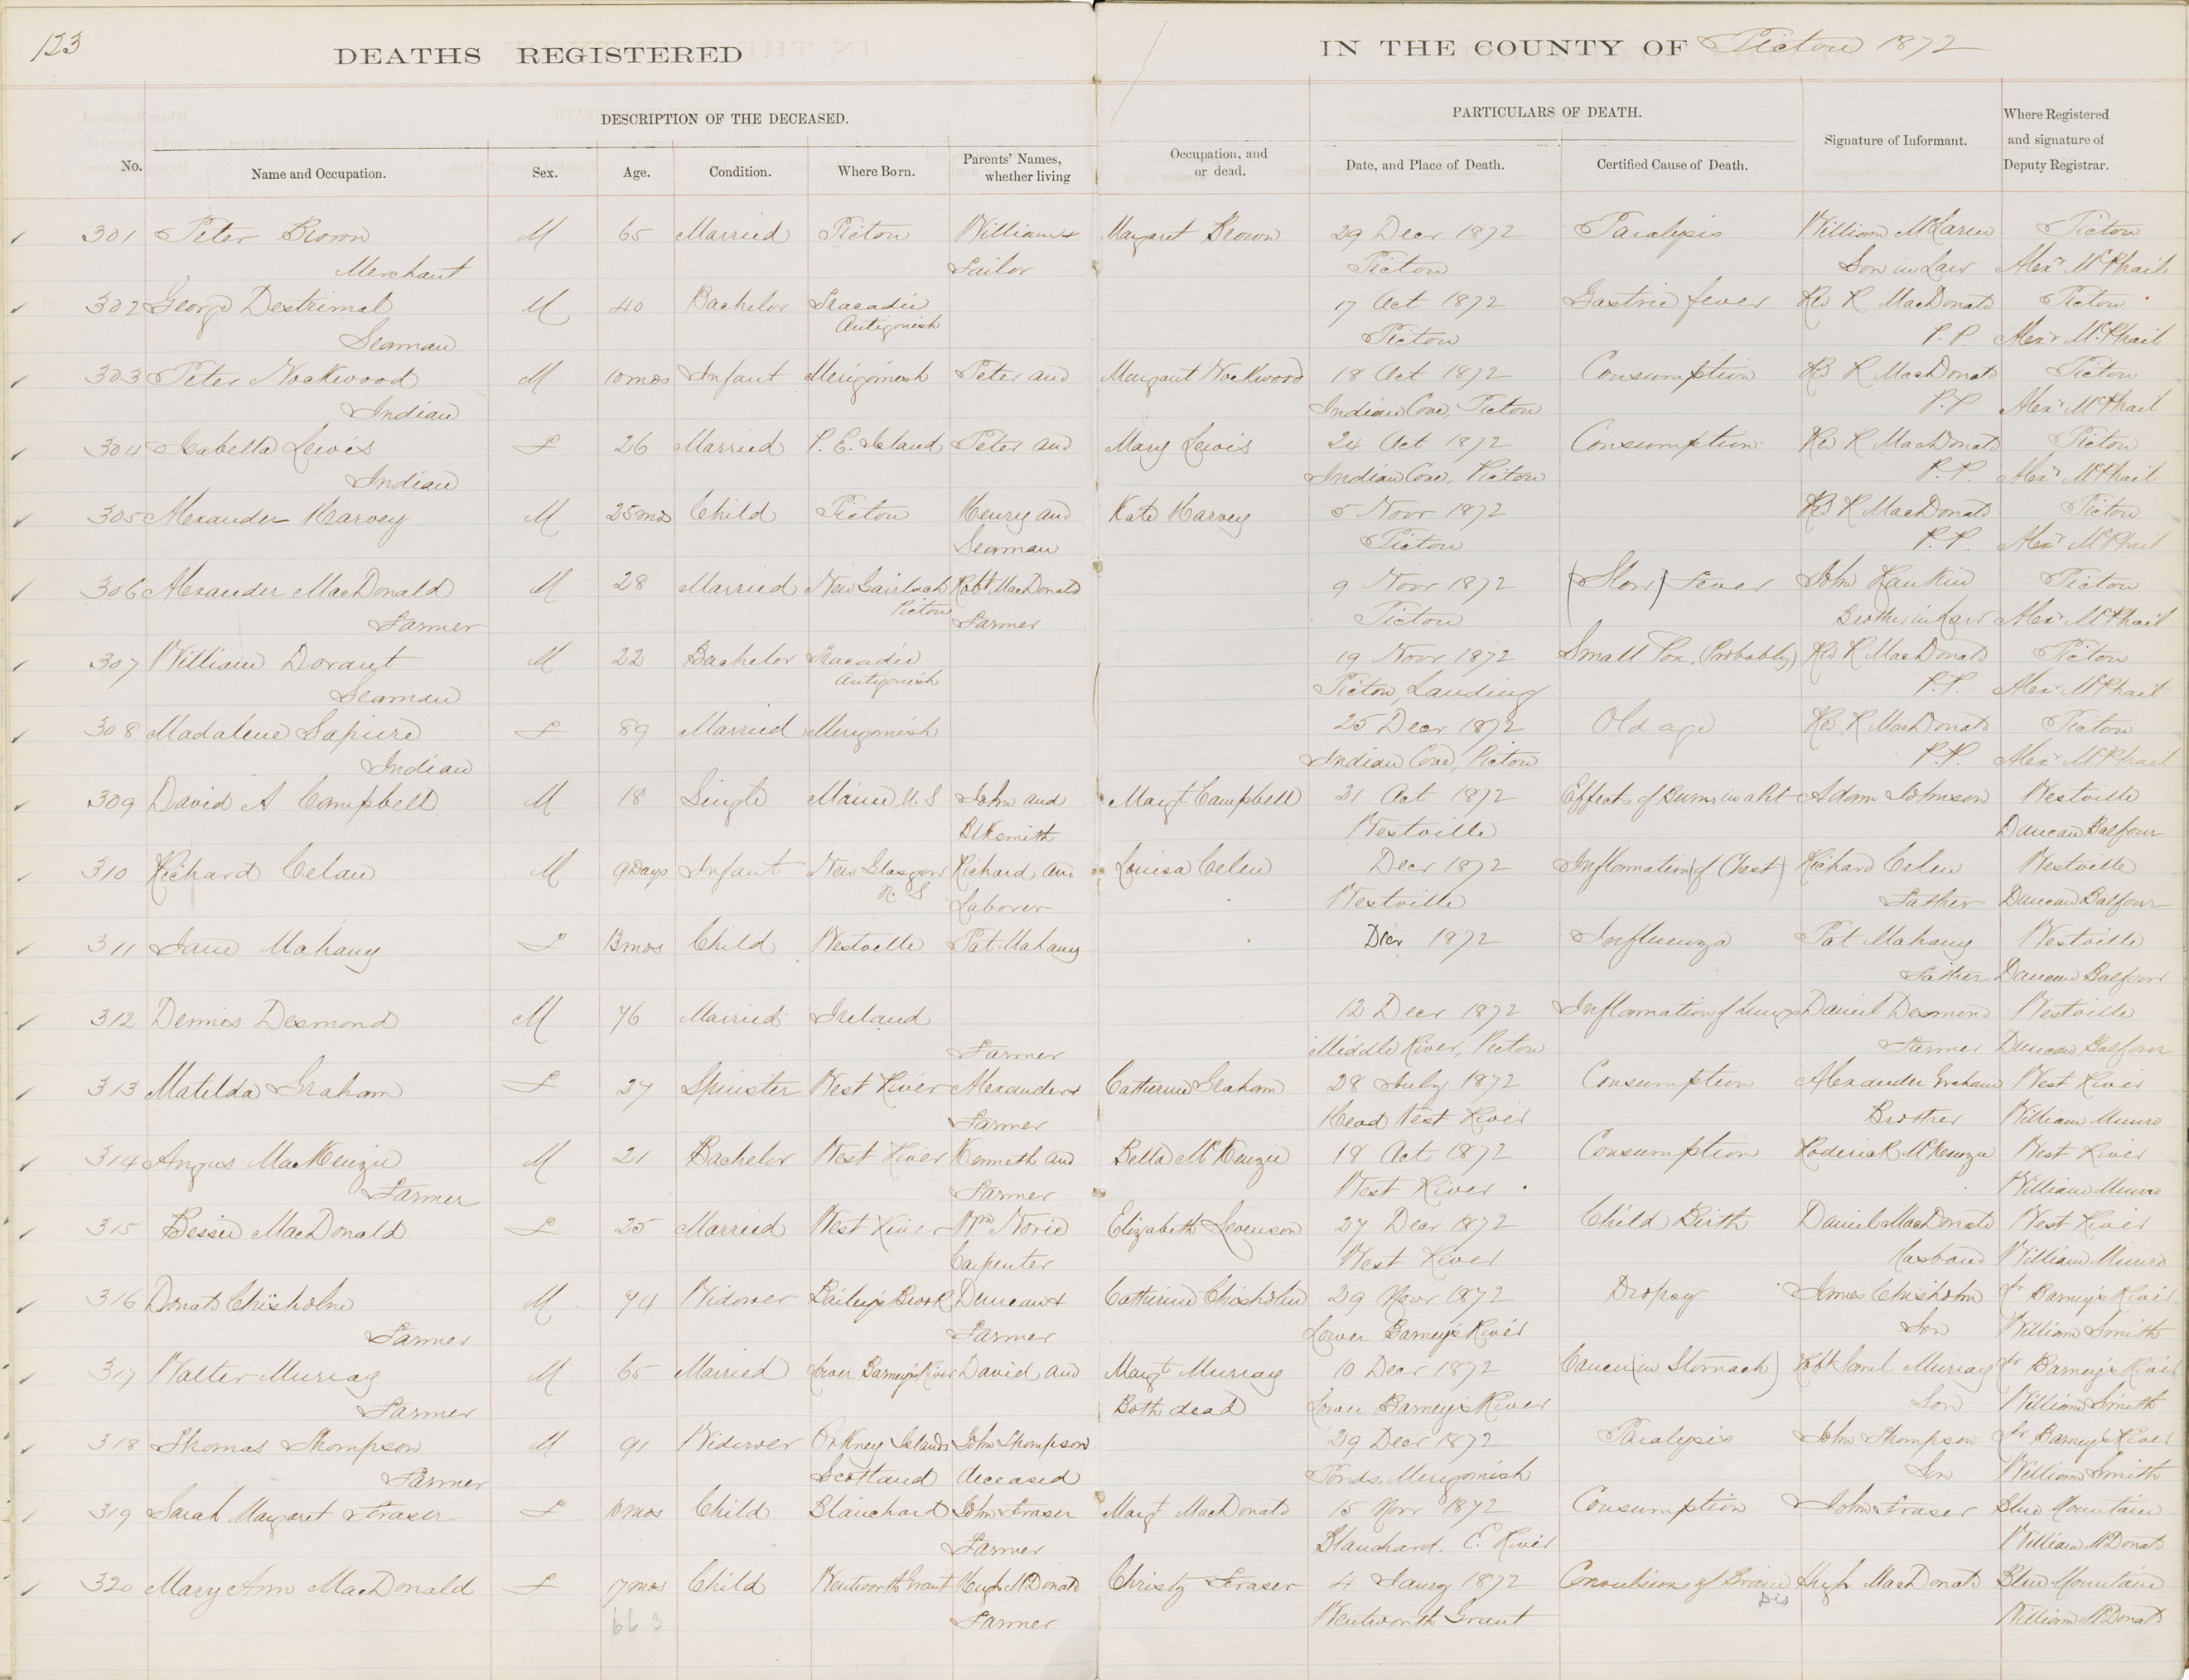 123
DEATHS REGISTERED IN THE COUNTY OF Pictou 1872
DESCRIPTION OF THE DECEASED. PARTICULARS OF DEATH. Where Registered
Signature of Informant. and signature of
No. Name and Occupation. Sex. Age. Condition. Where Born. Parents' Names, Occupation, and Date, and Place of Death. Certified Cause of Death. Deputy Registrar.
whether living or dead.
301 Peter Brown M 65 Married Pictou William + Margaret Brown 29 Decr 1872 Paralysis William McLaren Pictou
Merchant Sailor Pictou Son in Law Alexr McPhail
302 George Destrimal M 40 Bachelor Tracadie 17 Oct 1872 Gastric fever Rev R MacDonald Pictou
Antigonish
Seaman Pictou P.P. Alexr McPhail
303 Peter Nockwood M 10 mos Infant Merigomish Peter and Margaret Nockwood 18 Oct 1872 Consumption Rev R MacDonald Pictou
Indian Indian Cove, Pictou P.P. Alexr McPhail
304 Isabella Lewis F 26 Married P. E. Island Peter and Mary Lewis 24 Oct 1872 Consumption Rev R MacDonald Pictou
Indian Indian Cove, Pictou P.P. Alexr McPhail
305 Alexander Harvey M 25 mos Child Pictou Henry and Kate Harvey 5 Novr 1872 Rev R MacDonald Pictou
Seaman Pictou P.P. Alexr McPhail
306 Alexander MacDonald M 28 Married New Gairloch Robt MacDonald 9 Novr 1872 (Slow) Fever John Rankin Pictou
Pictou
Farmer Farmer Pictou Brother in Law Alexr McPhail
307 William Dorant M 22 Bachelor Tracadie 19 Novr 1872 Small Pox, (Probably) Rev R MacDonald Pictou
Antigonish
Seaman Pictou, Landing P.P. Alexr McPhail
308 Madalene Sapiere F 89 Married Merigomish 25 Decr 1872 Old age Rev R MacDonald Pictou
Indian Indian Cove, Pictou P.P. Alexr McPhail
309 David A Campbell M 18 Single Maine U.S John and Margt Campbell 21 Oct 1872 Effects of Burns in a Pit Adam Johnson Westville
Blksmith Westville Duncan Balfour
310 Richard Celan M 9 Days Infant New Glasgow Richard and Louisa Celen Decr 1872 Inflamation (of Chest) Richard Celen Westville
N. S
Laborer Westville Father Duncan Balfour
311 Jane Mahany F 13 mos Child Westville Pat Mahany Decr 1872 Influenza Pat Mahany Westville
Father Duncan Balfour
312 Dennis Desmond M 76 Married Ireland 12 Decr 1872 Inflamation of Lungs Daniel Desmond Westville
Farmer Middle River, Pictou Farmer Duncan Balfour
313 Matilda Graham F 27 Spinster West River Alexander + Catherine Graham 28 July 1872 Consumption Alexander Graham West River
Farmer Head West River Brother William Munro
314 Angus MacKenzie M 21 Bachelor West River Kenneth and Bella McKenzie 18 Oct 1872 Consumption Roderick McKenzie West River
Farmer Farmer West River William Munro
315 Bessie MacDonald F 25 Married West River Wm Norie Elizabeth Levenson 27 Decr 1872 Child Birth Daniel MacDonald West River
Carpenter West River Husband William Munro
316 Donald Chisholm M 74 Widower Bailey's Brook Duncan + Catherine Chisholm 29 Novr 1872 Dropsy James Chisholm Lr Barney's River
Farmer Farmer Lower Barney's River Son William Smith
317 Walter Murray M 65 Married Lower Barney's River David and Margt Murray 10 Decr 1872 Cancer (in Stomach) Robt Saml Murray Lr Barney's River
Farmer Both dead Lower Barney's River Son William Smith
318 Thomas Thompson M 91 Widower Orkney Islands John Thompson 29 Decr 1872 Paralysis John Thompson Lr Barney's River
Farmer Scotland deceased Ponds, Merigomish Son William Smith
319 Sarah Margaret Fraser F 10 mos Child Blanchard John Fraser Margt MacDonald 15 Novr 1872 Consumption John Fraser Blue Mountain
Farmer Blanchard, E. River William McDonald
320 Mary Ann MacDonald F 17 mos Child Wentworth Grant Hugh McDonald Christy Fraser 4 Jany 1872 Convulsions of Brain Hugh MacDonald Blue Mountain
Dis
66 3 Farmer Wentworth Grant William McDonald